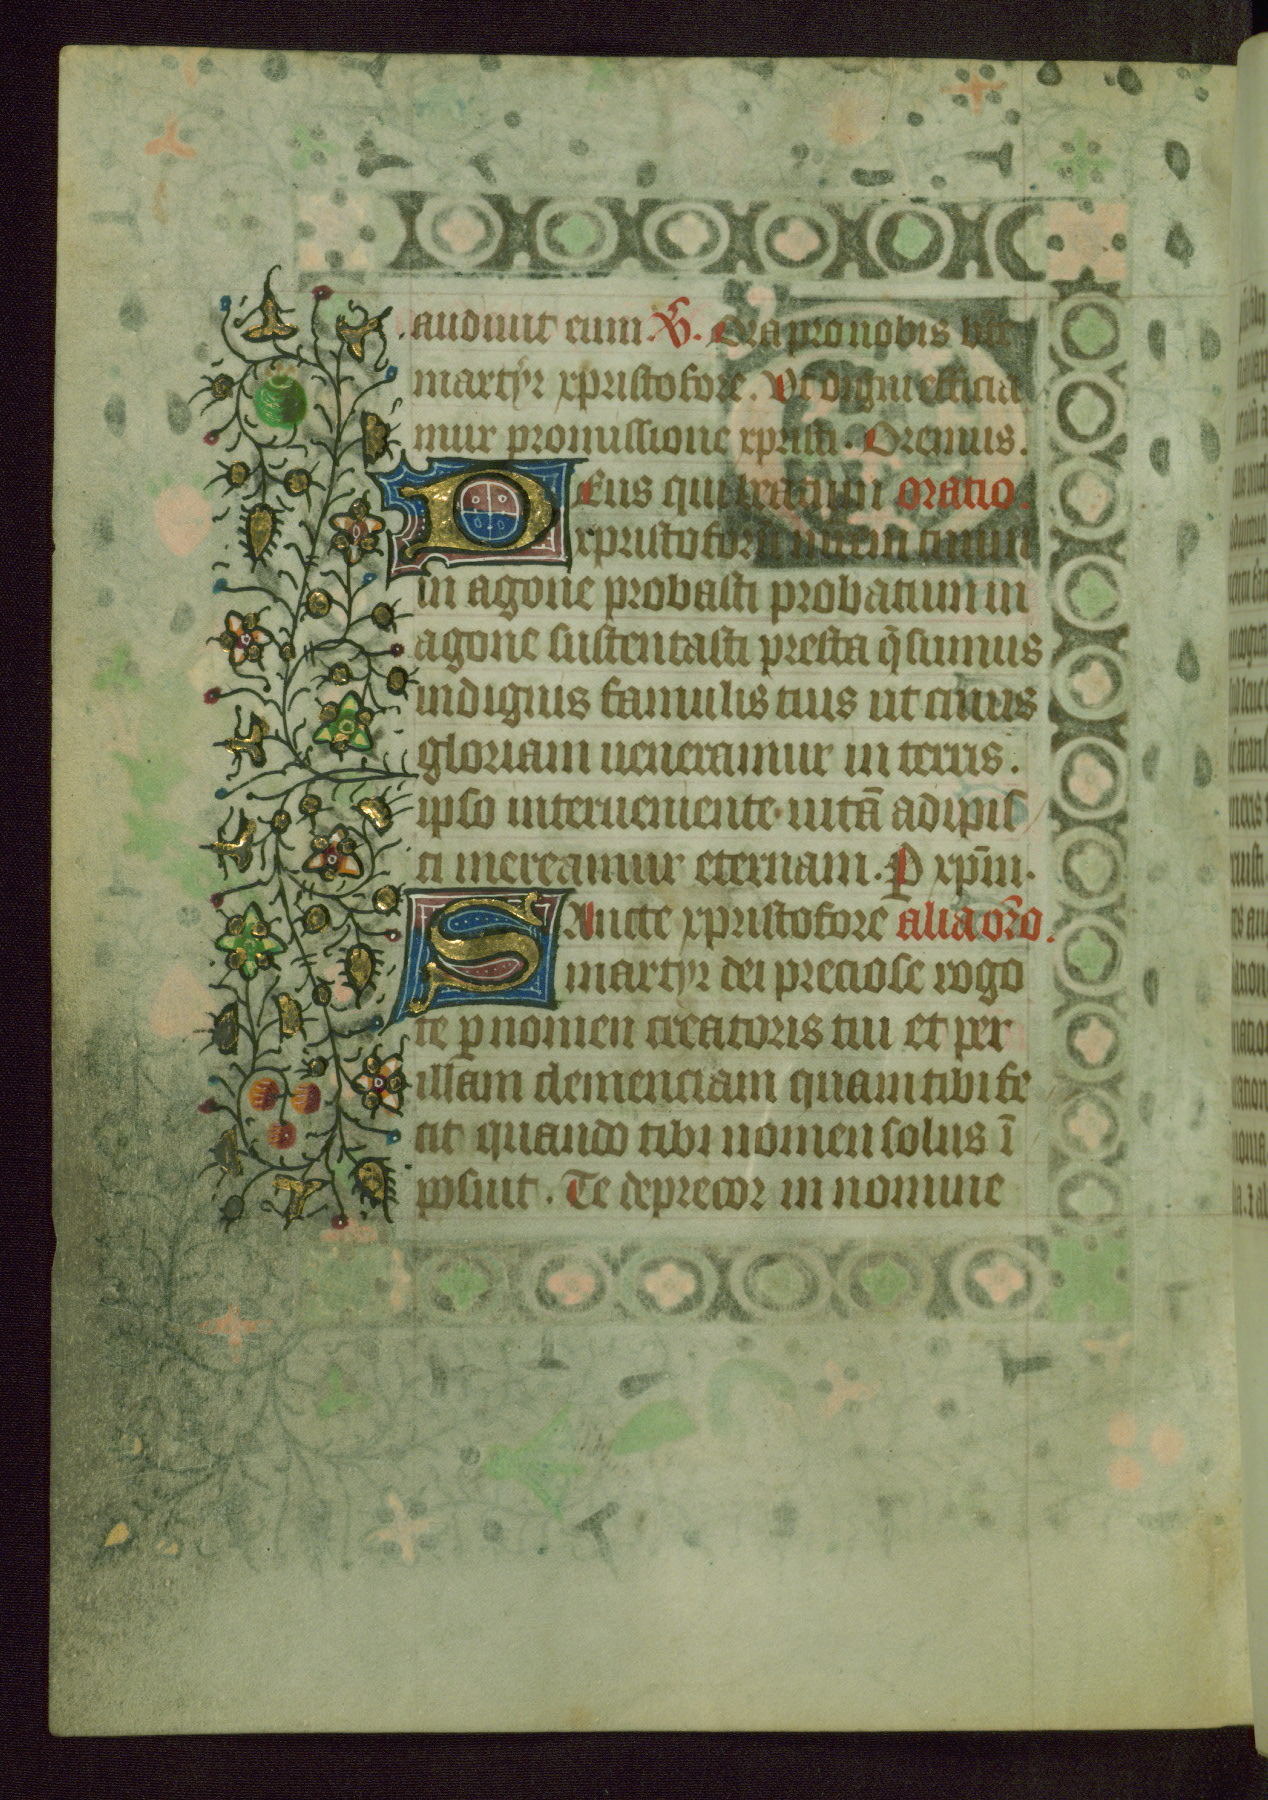 audiunt eum. V̄. Ora pro nobis bte
martẏr xpristofore. Vt digni efficia
mur promissione xpristi. Oremus.
Deus qui beatum oratio.
xpristoforū mirem tuum
in agone probasti probatum in
agone sustentasti presta q̄sumus
indignis famulis tuis ut cuius
gloriam ueneramur in terris.
ipso interueniente uitā adipis
ci mereamur eternam. P xpm̄.
SAncte xpristofore alia orō.
martẏr dei preciose rogo
te p nomen creatoris tui et per
illam clemenciam quam tibi fe
cit quando tibi nomen solus ī
posuit. Te deprecor in nomine